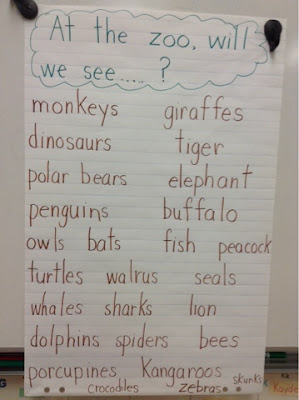 At the zoo, will
we see..... ?
monkeys giraffes
dinosaurs tiger
polar bears elephant
penguins buffalo
owls bats fish peacock
turtles walrus seals
whales sharks lion
dolphins spiders bees
porcupines Kangaroos skunks
crocodiles zebras